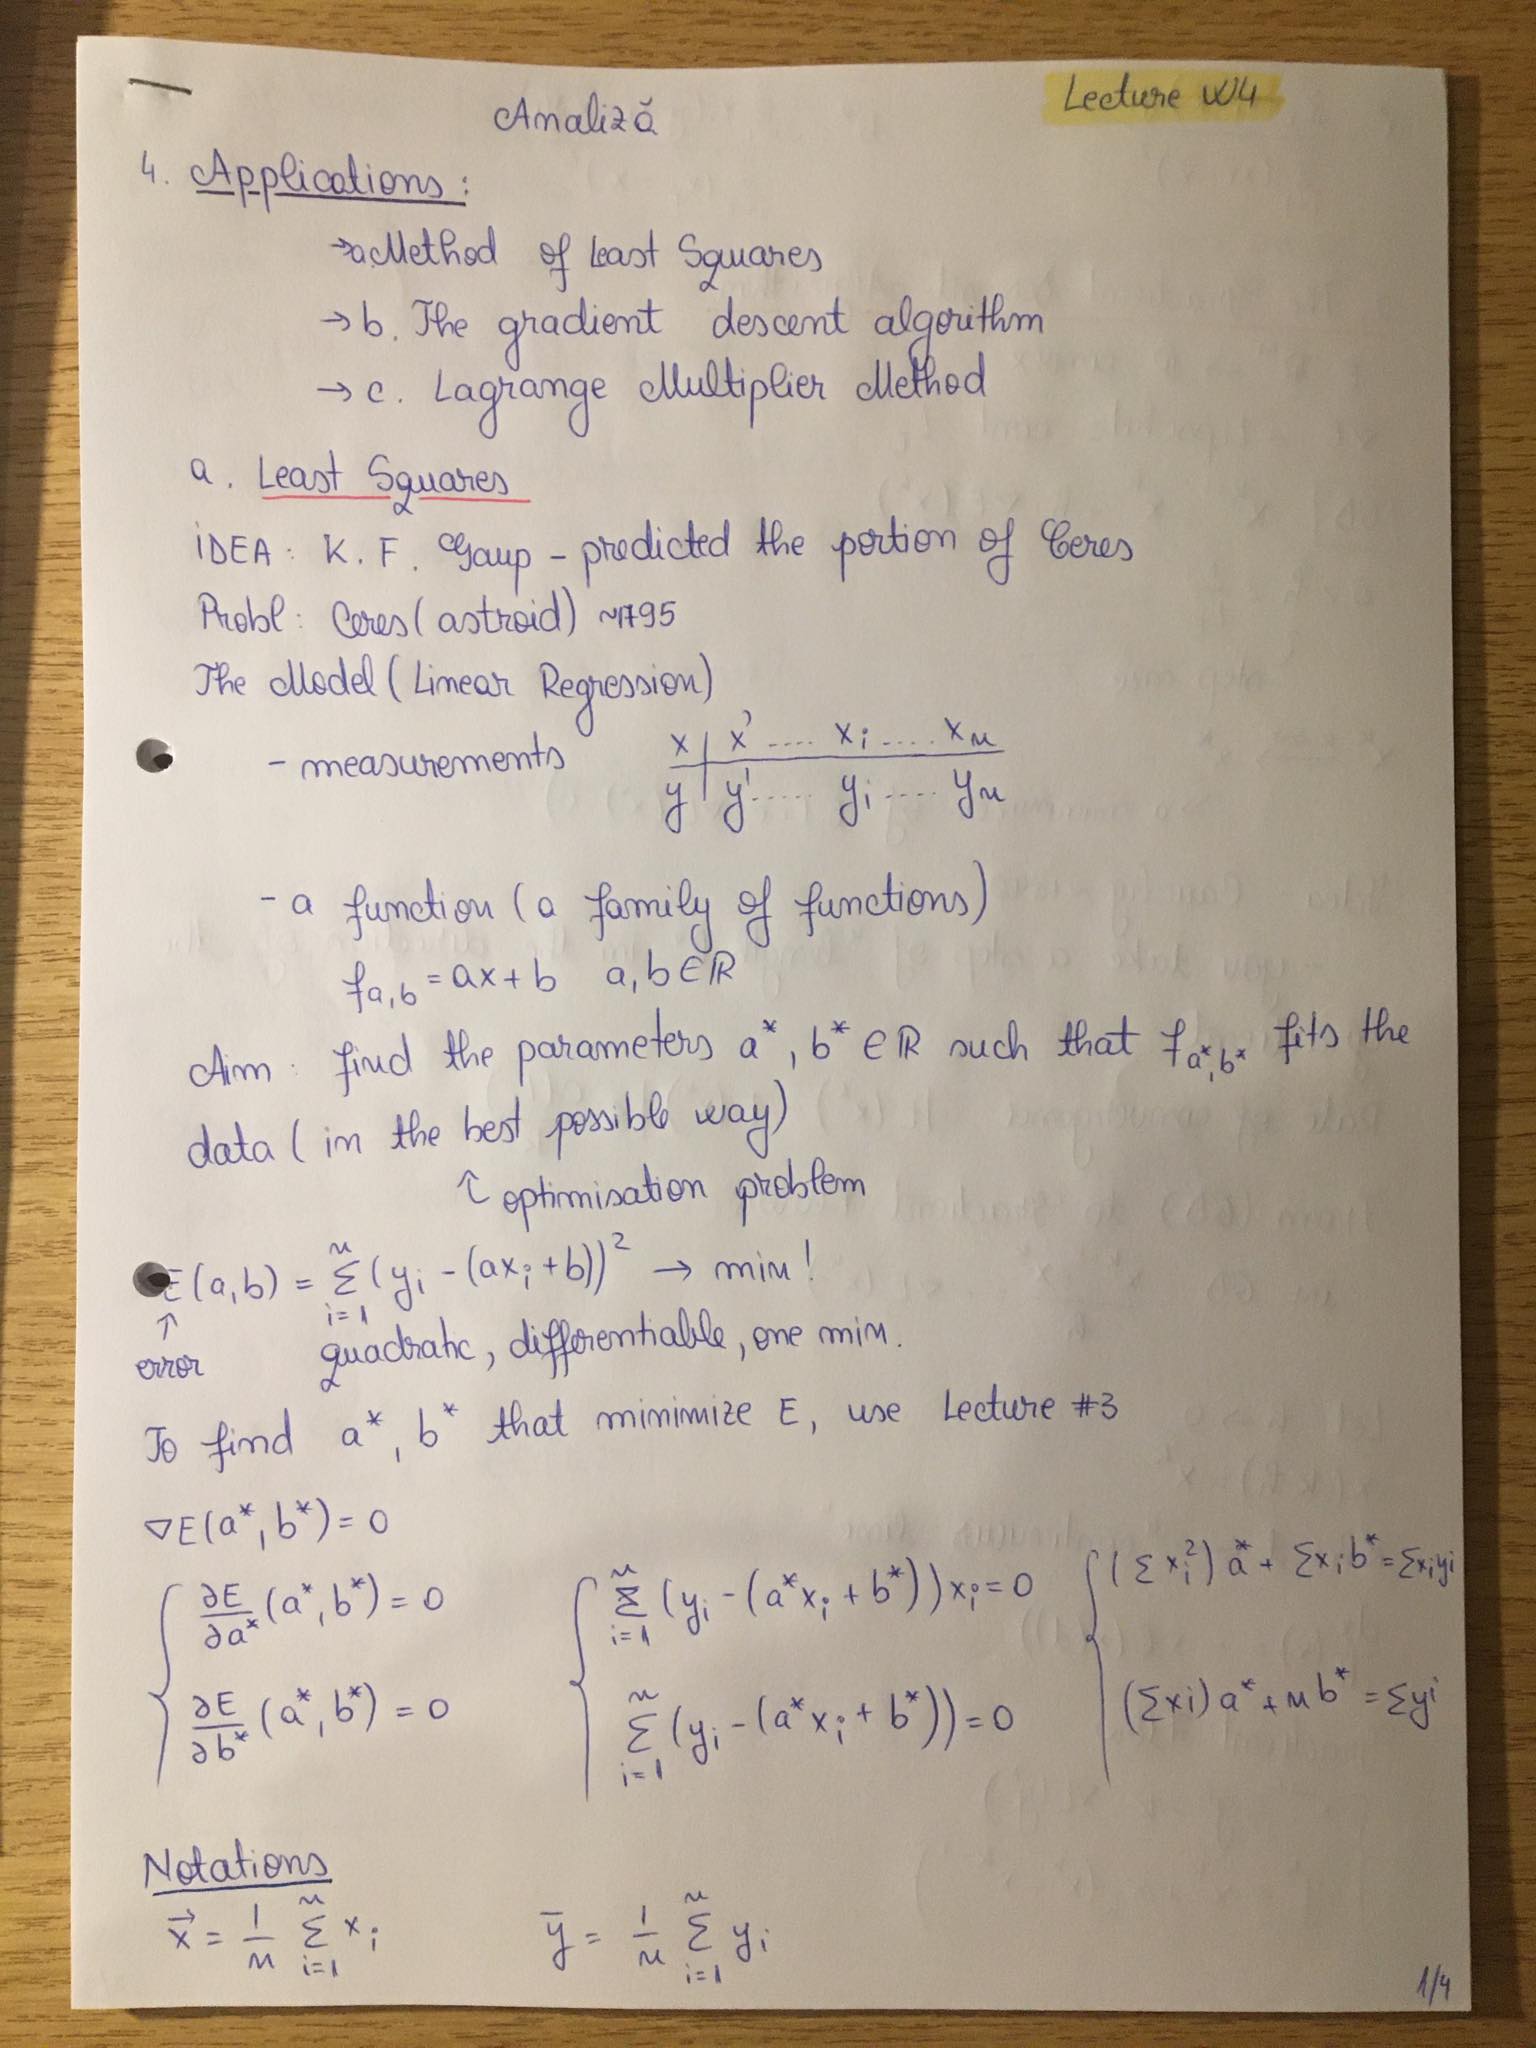 Lecture W4
Analiză
4. Applications:
→a. Method of Least Squares
→b. The gradient descent algorithm
→c. Lagrange Multiplier Method
a. Least Squares
iDEA: K. F. Gauß - predicted the portion of Ceres
Probl: Ceres (astroid) ~1795
The Model (Linear Regression)
- measurements
x | x' .... xi .... xn
y | y' .... yi .... yn
- a function (a family of functions)
fa,b = ax + b a, b ∈ ℝ
Aim: find the parameters a*, b* ∈ ℝ such that fa*,b* fits the
data (in the best possible way)
↑ optimisation problem
E(a,b) = Σ_{i=1}^{n} (yi - (axi + b))² → min!
↑
error quadratic, differentiable, one min.
To find a*, b* that minimize E, use Lecture #3
∇E(a*, b*) = 0
{ ∂E/∂a* (a*, b*) = 0 { Σ_{i=1}^{n} (yi - (a*xi + b*))xi = 0 { (Σxi²) a* + Σxi b* = Σxiyi
∂E/∂b* (a*, b*) = 0 Σ_{i=1}^{n} (yi - (a*xi + b*)) = 0 (Σxi) a* + n b* = Σyi
Notations
x⃗ = 1/n Σ_{i=1}^{n} xi ȳ = 1/n Σ_{i=1}^{n} yi
1/4